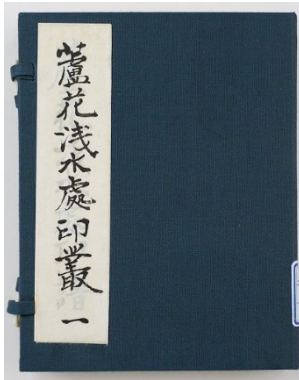 蘆花浅水處印叢一